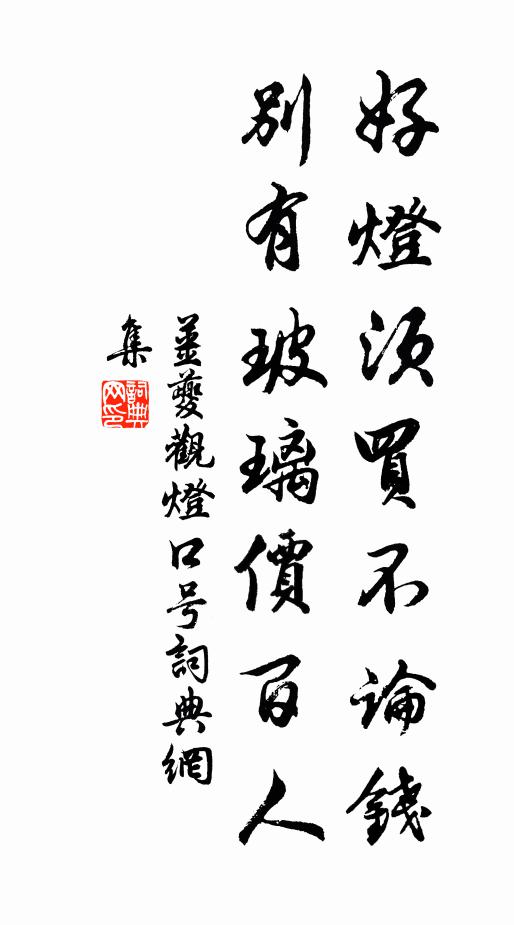 好燈須買不論錢
別有玻璃價百人
姜夔觀燈口号詞典網
集
詞典
网印